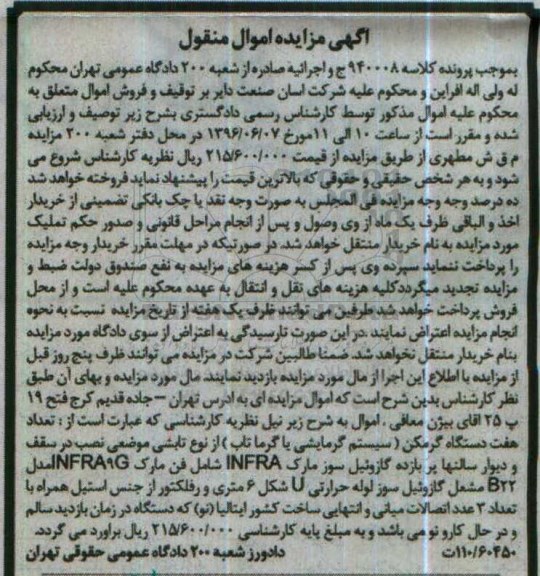 آگهی مزایده اموال منقول
بموجب پرونده کلاسه ۹۴۰۰۰۸ ج و اجرائیه صادره از شعبه ۲۰۰ دادگاه عمومی تهران محکوم
له ولی اله افراین و محکوم علیه شرکت اسان صنعت دایر بر توقیف و فروش اموال متعلق به
محکوم علیه اموال مذکور توسط کارشناس رسمی دادگستری بشرح زیر توصیف و ارزیابی
شده و مقرر است از ساعت ۱۰ الی ۱۱ مورخ ۱۳۹۶/۰۶/۰۷ در محل دفتر شعبه ۲۰۰ مزایده
م ق ش مطهری از طریق مزایده از قیمت ۲۱۵/۶۰۰/۰۰۰ ریال نظریه کارشناس شروع می
شود و به هر شخص حقیقی و حقوقی که بالاترین قیمت را پیشنهاد نماید فروخته خواهد شد
ده درصد وجه وجه مزایده فی المجلس به صورت وجه نقد یا چک بانکی تضمینی از خریدار
اخذ و الباقی ظرف یک ماه از وی وصول و پس از انجام مراحل قانونی و صدور حکم تملیک
مورد مزایده به نام خریدار منتقل خواهد شد. در صورتیکه در مهلت مقرر خریدار وجه مزایده
را پرداخت ننماید سپرده وی پس از کسر هزینه های مزایده به نفع صندوق دولت ضبط و
مزایده تجدید میگرددکلیه هزینه های نقل و انتقال به عهده محکوم علیه است و از محل
فروش پرداخت خواهد شد طرفین می توانند ظرف یک هفته از تاریخ مزایده نسبت به نحوه
انجام مزایده اعتراض نمایند .در این صورت تارسیدگی به اعتراض از سوی دادگاه مورد مزایده
بنام خریدار منتقل نخواهد شد. ضمنا طالبین شرکت در مزایده می توانند ظرف پنج روز قبل
از مزایده با اطلاع این اجرا از مال مورد مزایده بازدید نمایند. مال مورد مزایده و بهای آن طبق
نظر کارشناس بدین شرح است که اموال مزایده ای به ادرس تهران – جاده قدیم کرج فتح ۱۹
پ ۲۵ اقای بیژن معافی ، اموال به شرح زیر نیل نظریه کارشناسی که عبارت است از : تعداد
هفت دستگاه گرمکن ( سیستم گرمایشی یا گرما تاب ) از نوع تابشی موضعی نصب در سقف
و دیوار سالنها پر بازده گازوئیل سوز مارک INFRA شامل فن مارک INFRA۹Gمدل
B۲۲ مشعل گازوئیل سوز لوله حرارتی U شکل ۶ متری و رفلکتور از جنس استیل همراه با
تعداد ۳ عدد اتصالات میانی و انتهایی ساخت کشور ایتالیا (نو) که دستگاه در زمان بازدید سالم
و در حال کارو نو می باشد و به مبلغ پایه کارشناسی ۲۱۵/۶۰۰/۰۰۰ ریال براورد می گردد.
۱۱۰/۶۰۴۵۰ت دادورز شعبه ۲۰۰ دادگاه عمومی حقوقی تهران